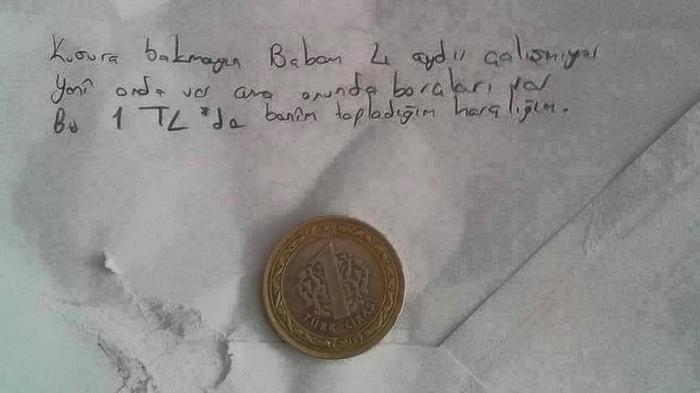 Kusura bakmayın Babam 4 aydır çalışmıyor
Yeni onda var ama onunda borcları var
Bu 1 TL *da banim topladığım harçlığım.
1
TÜRK LİRASI